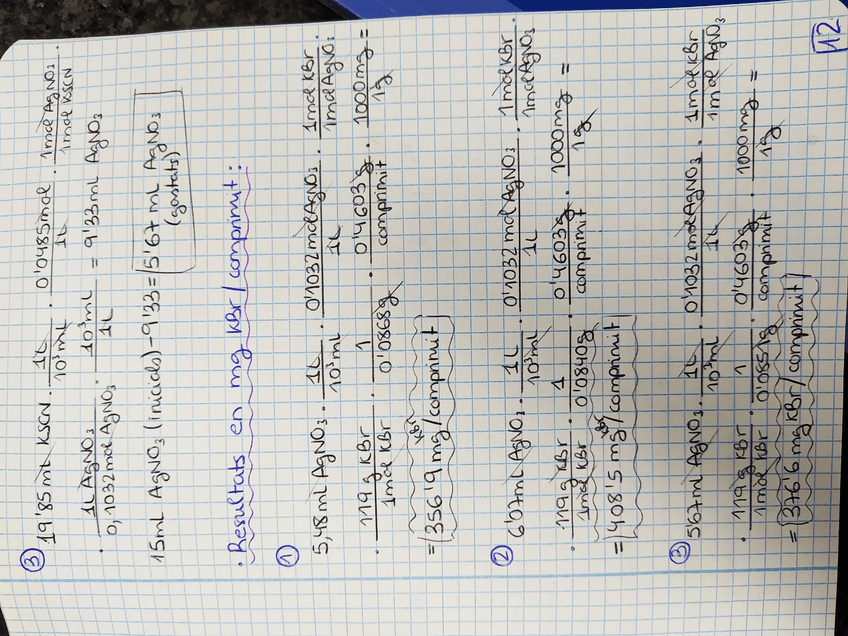 ③ 19'85 ml KSCN · 1L / 10³ml · 0'0485mol / 1L · 1mol AgNO₃ / 1mol KSCN ·
· 1L AgNO₃ / 0,1032 mol AgNO₃ · 10³ml / 1L = 9'33 ml AgNO₃
15ml AgNO₃ (inicials) - 9'33 = 5'67 ml AgNO₃
(gastats)
· Resultats en mg KBr/comprimit:
①
5,48 ml AgNO₃ · 1L / 10³ml · 0'1032 mol AgNO₃ / 1L · 1mol KBr / 1mol AgNO₃ ·
· 119 g KBr / 1mol KBr · 1 / 0'0868g · 0'4603g / comprimit · 1000mg / 1g =
= 356'9 mg KBr/comprimit
②
6'07 ml AgNO₃ · 1L / 10³ml · 0'1032 mol AgNO₃ / 1L · 1mol KBr / 1mol AgNO₃ ·
· 119 g KBr / 1mol KBr · 1 / 0'0840g · 0'4603g / comprimit · 1000mg / 1g =
= 408'5 mg KBr/comprimit
③
5'67 ml AgNO₃ · 1L / 10³ml · 0'1032 mol AgNO₃ / 1L · 1mol KBr / 1mol AgNO₃
· 119 g KBr / 1mol KBr · 1 / 0'0851g · 0'4603g / comprimit · 1000mg / 1g =
= 376'6 mg KBr/comprimit
12